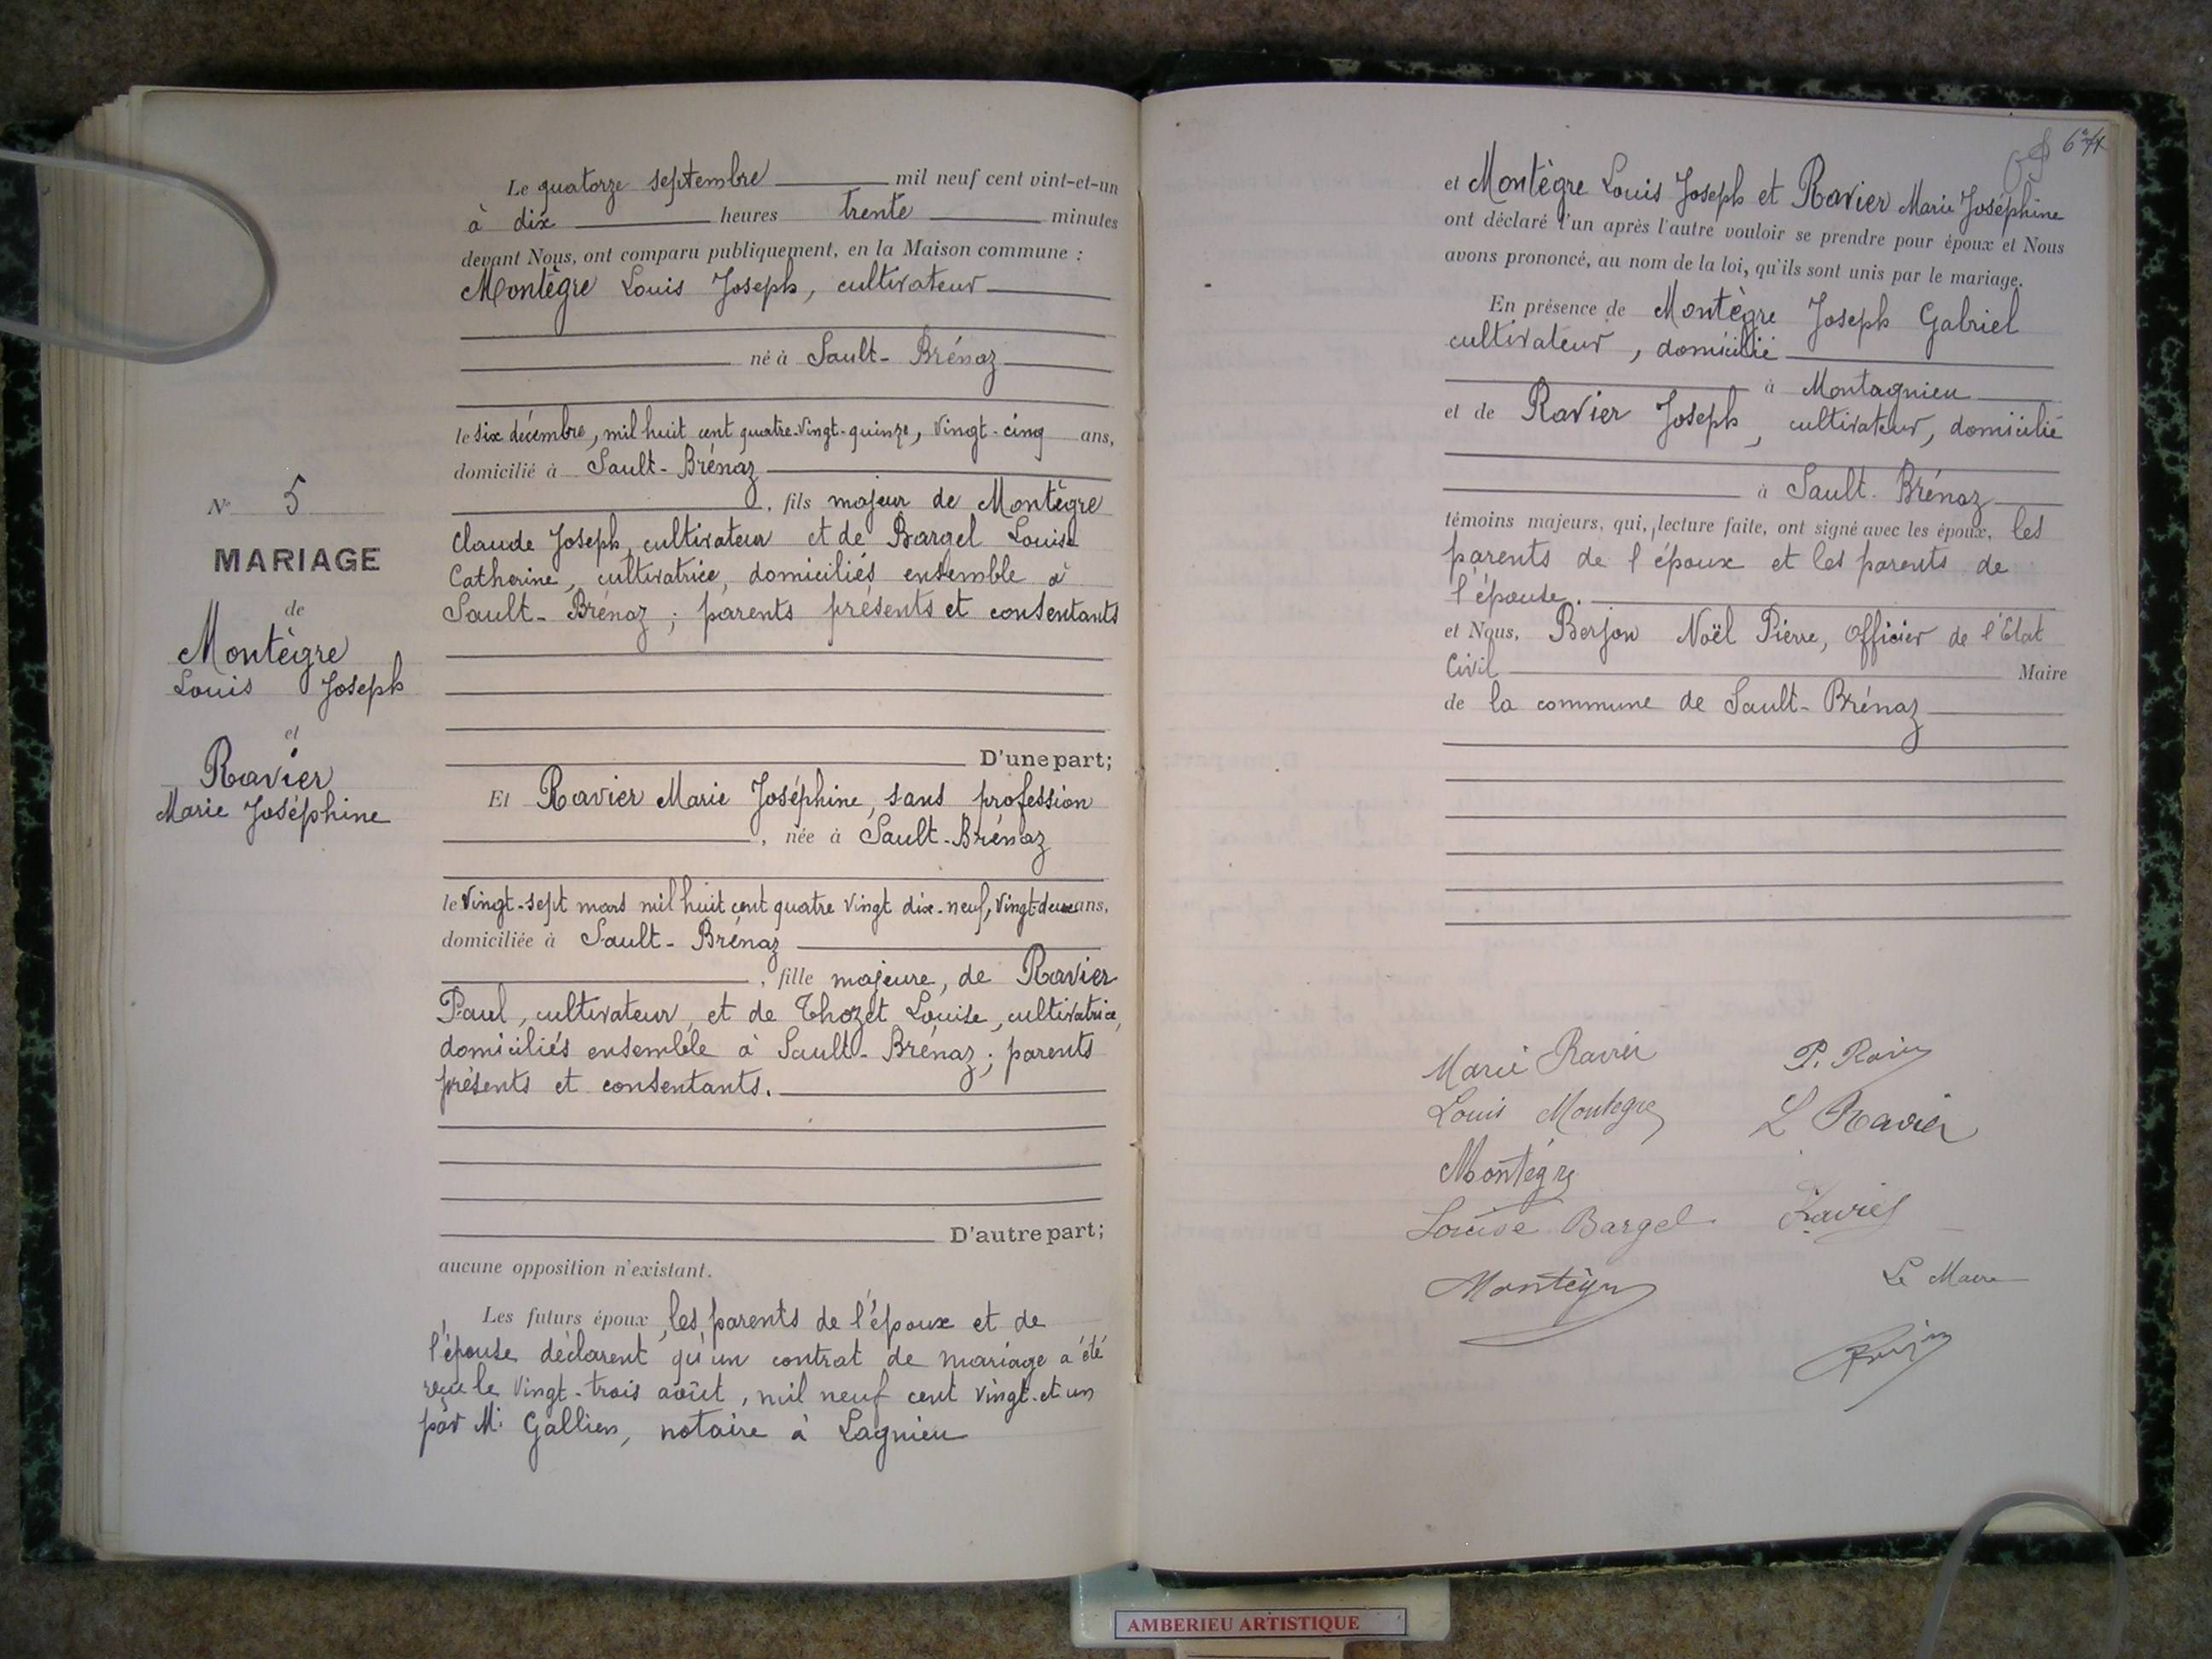 Le quatorze septembre mil neuf cent vint-et-un
à dix heures trente minutes
devant Nous, ont comparu publiquement, en la Maison commune :
Montègre Louis Joseph, cultivateur
né à Sault-Brénaz
le six décembre, mil huit cent quatre-vingt-quinze, vingt-cinq ans,
domicilié à Sault-Brénaz
, fils majeur de Montègre
Claude Joseph, cultivateur et de Bargel Louise
Catherine, cultivatrice, domiciliés ensemble à
Sault-Brénaz ; parents présents et consentants
D'une part;
Et Ravier Marie Joséphine, sans profession
, née à Sault-Brénaz
le vingt-sept mars mil huit cent quatre vingt dix-neuf, vingt-deux ans,
domiciliée à Sault-Brénaz
, fille majeure, de Ravier
Paul, cultivateur, et de Thozet Louise, cultivatrice,
domiciliés ensemble à Sault-Brénaz ; parents
présents et consentants.
D'autre part;
aucune opposition n'existant.
Les futurs époux, les parents de l'époux et de
l'épouse déclarent qu'un contrat de mariage a été
reçu le vingt-trois août, mil neuf cent vingt-et un
par Me Gallien, notaire à Lagnieu
No 5
MARIAGE
de
Montègre
Louis Joseph
et
Ravier
Marie Joséphine
et Montègre Louis Joseph et Ravier Marie Joséphine
ont déclaré l'un après l'autre vouloir se prendre pour époux et Nous
avons prononcé, au nom de la loi, qu'ils sont unis par le mariage.
En présence de Montègre Joseph Gabriel
cultivateur, domicilié
à Montagnieu
et de Ravier Joseph, cultivateur, domicilié
à Sault-Brénaz
témoins majeurs, qui, lecture faite, ont signé avec les époux, les
parents de l'époux et les parents de
l'épouse.
et Nous, Berjon Noël Pierre, Officier de l'Etat
Civil Maire
de la commune de Sault-Brénaz
Marie Ravier
P. Ravier
Louis Montegre
L Ravier
Montégre
Louise Bargel
Ravier
Montègre
Le Maire
AMBERIEU ARTISTIQUE